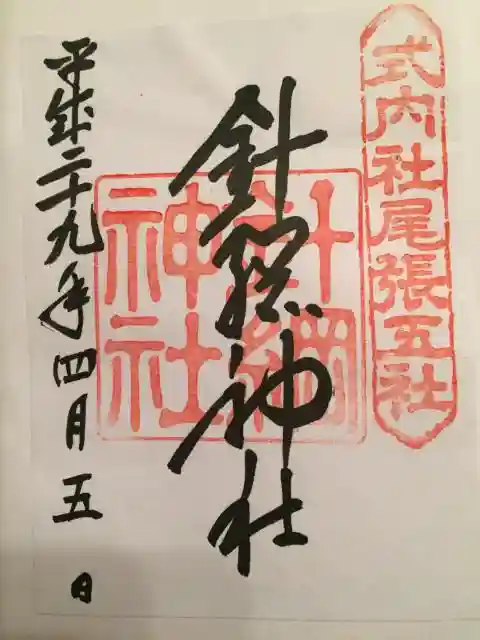 式内社尾張五社
針綱神社
針綱
神社
平成二十九年四月五日